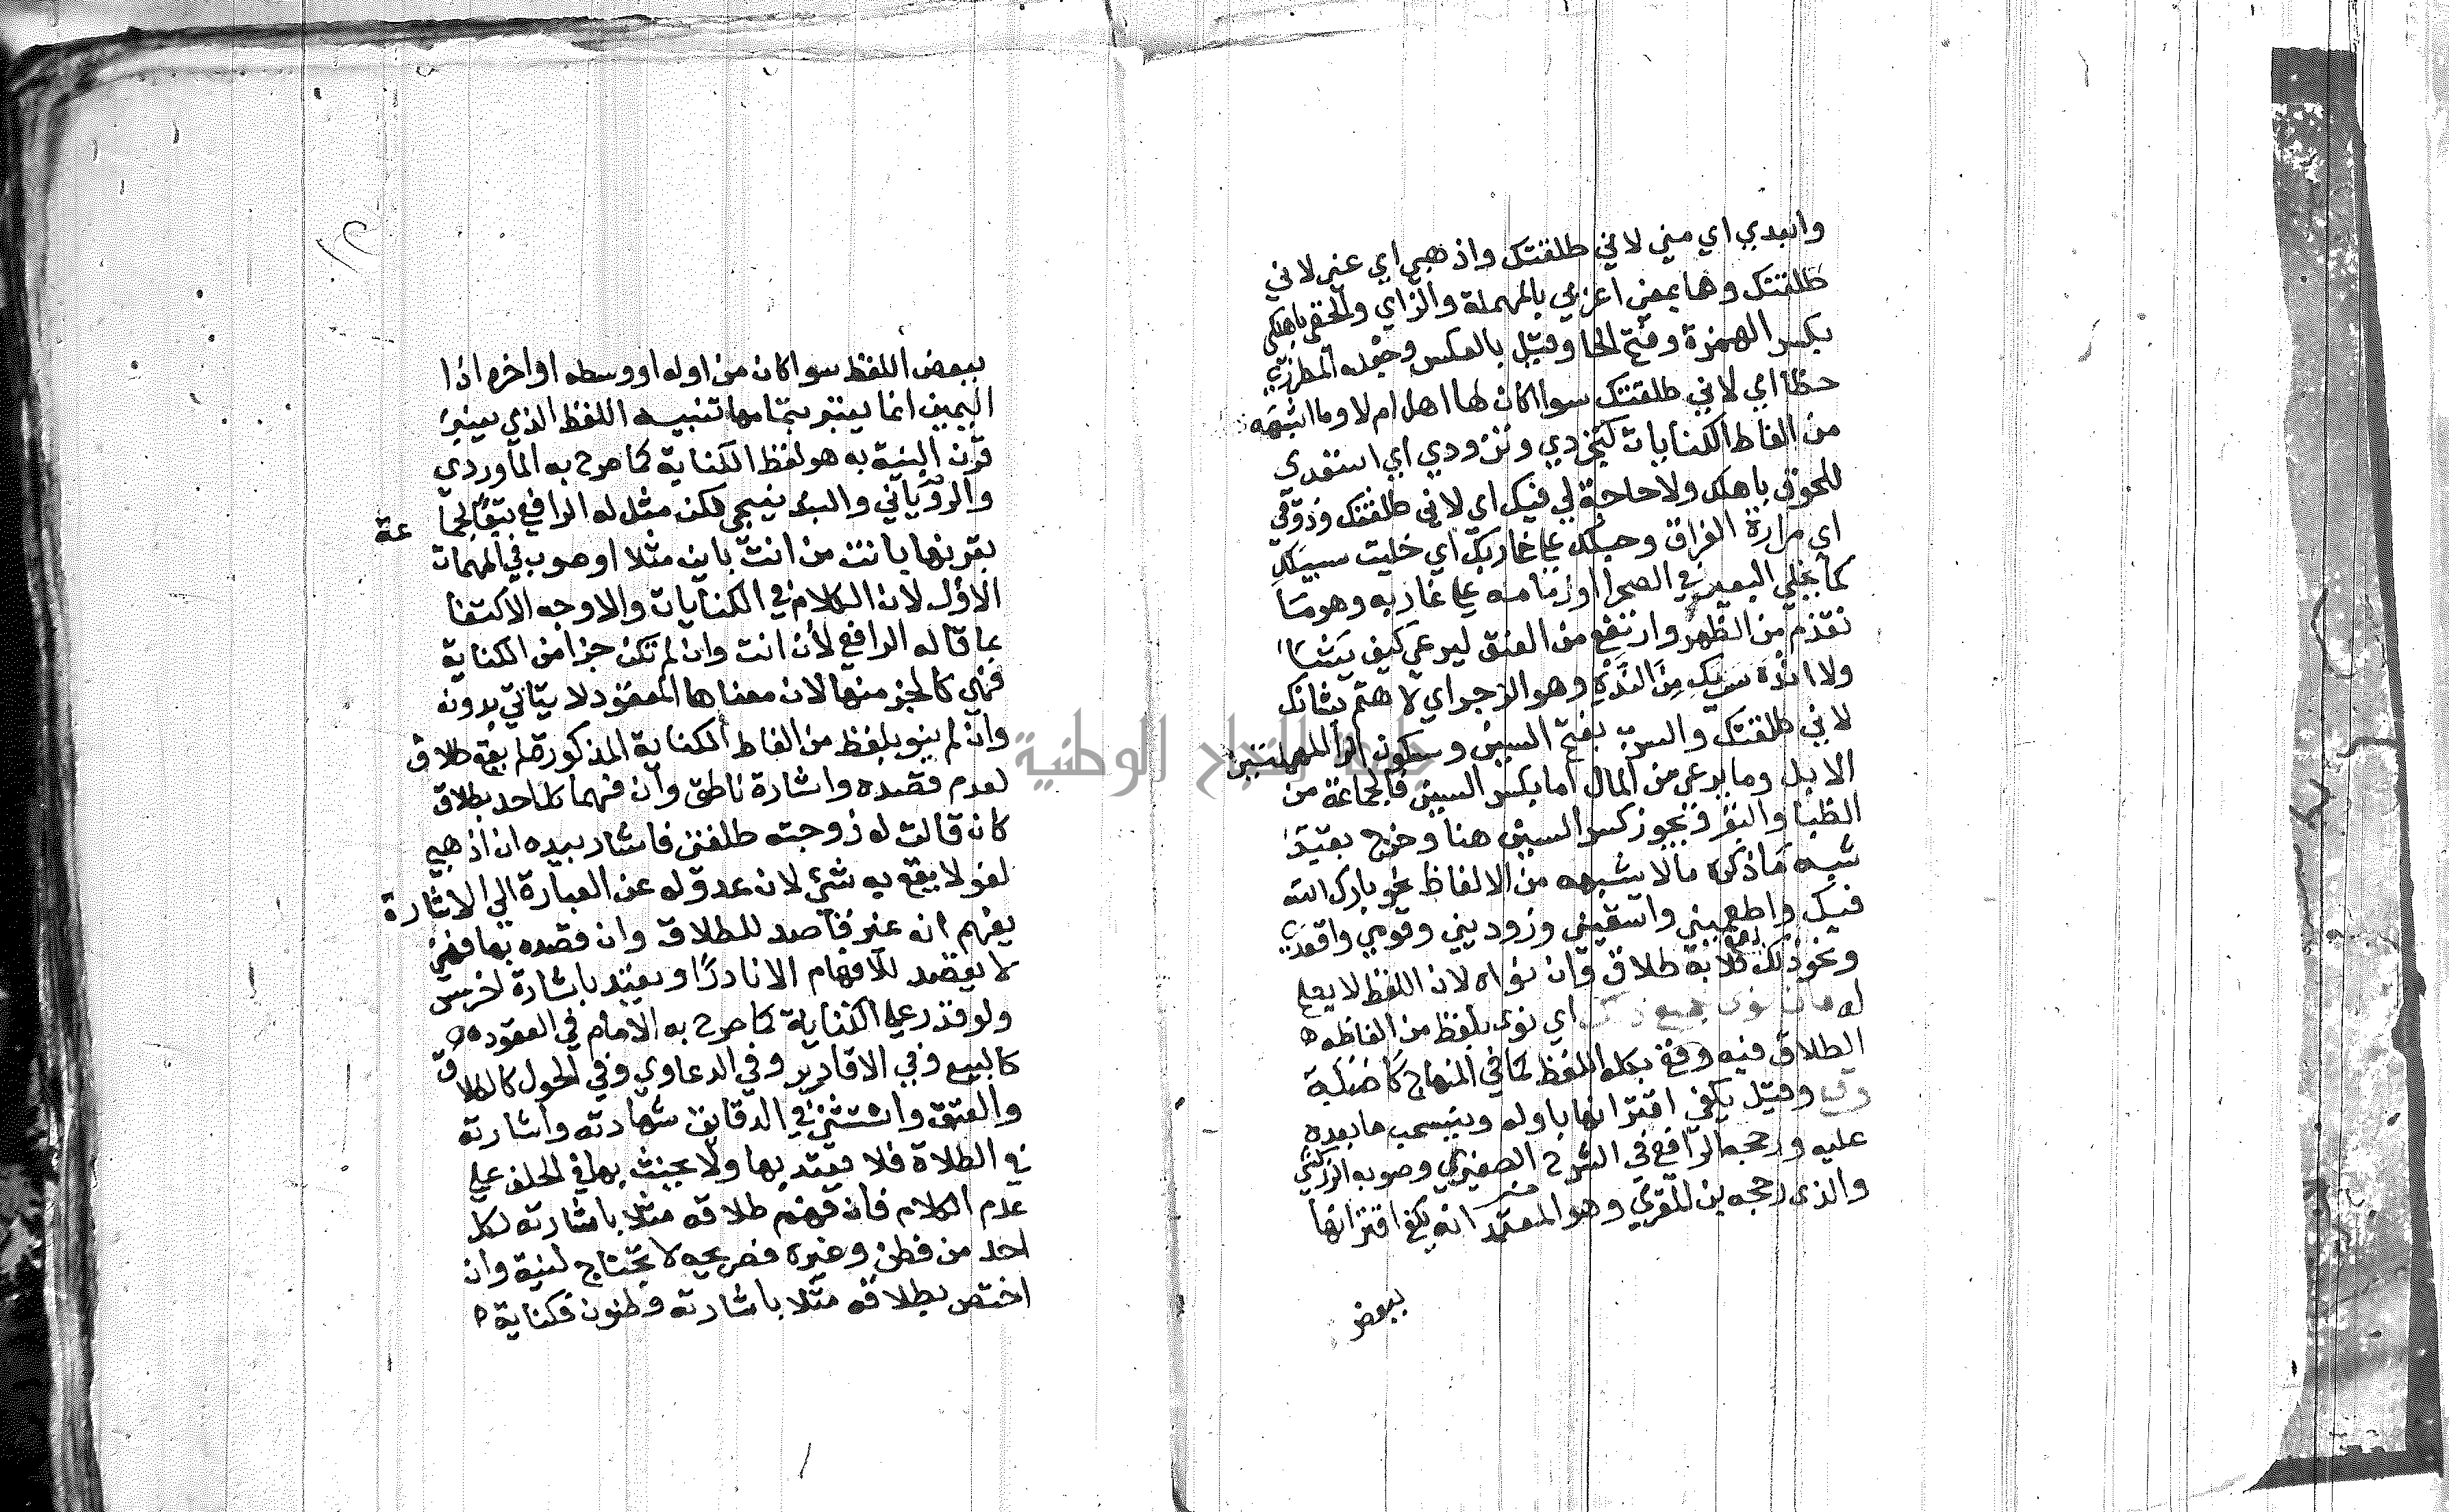 وابعدي اي مني لاني طلقتك واذهبي اي عني لاني
طلقتك وهما بمعني اعزبي بالمهملة والزاي والحقي باهلكي
بكسر الهمزة وفتح الحا وقيل بالعكس وجعله المطرزي
خطا اي لاني طلقتك سوا اكان لها اهل ام لا وما اشبهه
من الفاظ الكنايات كتجردي وتزودي اي استعدي
للحوق باهلك ولا حاجة لي فيك اي لاني طلقتك وذوقي
اي مرارة الفراق وحبلك علي غاربك اي خليت سبيلك
كما يخلي البعير في الصحرا وزمامه علي غاربه وهو ما
تقدم من الظهر وارتفع من العنق ليرعي كيف يشا
ولا انده سربك من النده وهو الزجر اي لا اهتم بشانك
لاني طلقتك والسرب بفتح السين وسكون الرا المهملتين
الابل وما يرعي من المال اما بكسر السين فالجماعة من
الظبا والبقر فيجوز كسر السين هنا وخرج بقيد
شبه ما ذكر ما لا يشبهه من الالفاظ نحو بارك الله
فيك واطعميني واسقيني وزوديني وقومي واقعدي
ونحو ذلك فلا يقع به طلاق وان نواه لان اللفظ لا يصلح
له فان نوى بجميع ذلك اي نوى بلفظ من الفاظه
الطلاق فيه وقع بكل اللفظ كما في المنهاج كاصله
وقيل يكفي اقترانها باوله وينسحب ما بعده
عليه ورجحه الرافعي في الشرح الصغير وصوبه الزركشي
والذي رجحه بن المقري وهو المعتمد انه يكفي اقترانها
ببعض
ببعض اللفظ سوا كان من اوله او وسطه او اخره اذا
اليمين انما يعتبر بتمامها تنبيه اللفظ الذي يعتبر
قرن النية به هو لفظ الكناية كما صرح به الماوردي
والروياني والبندنيجي لكن مثل له الرافعي تبعا لجماعة
بقرنها بانت من انت باين مثلا وصوب في المهمات
الاول لان الكلام في الكنايات والاوجه الاكتفا
بما قاله الرافعي لان انت وان لم تكن جزا من الكناية
فهي كالجز منها لان معناها المقصود لا يتاتي بدونه
وان لم ينو بلفظ من الفاظ الكناية المذكورة لم يقع طلاق
لعدم قصده واشارة ناطق وان فهمها كل احد بطلاق
كان قالت له زوجته طلقني فاشار بيده ان اذهبي
لغو لا يقع به شئ لان عدوله عن العبارة الي الاشارة
يفهم انه غير قاصد للطلاق وان قصده بها فهي
لا يقصد للافهام الا نادرا ويعتد باشارة اخرس
ولو قدر علي الكتابة كما صرح به الامام في العقود
كالبيع وفي الاقارير وفي الدعاوي وفي الحلول كالطلاق
والعتق واستثني في الدقايق شهادته واشارته
في الصلاة فلا يعتد بها ولا يحنث بها في الحلف علي
عدم الكلام فان فهم طلاقه مثلا باشارته لكل
احد من فطن وغيره فصريحه لا يحتاج لنية وان
اختص بطلاقه مثلا باشارته فطنون فكناية
جامعة النجاح الوطنية